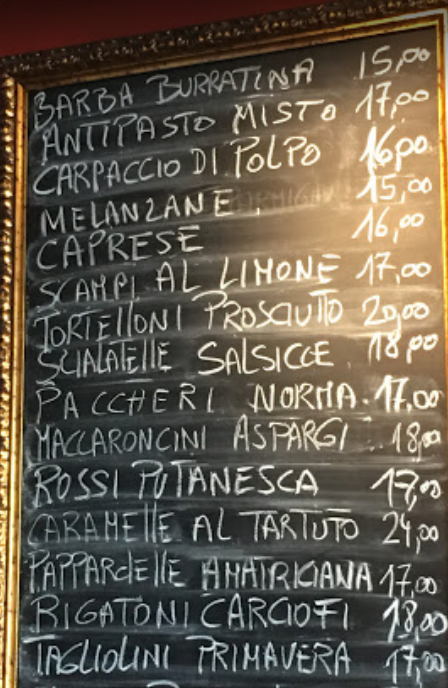 BARBA BURRATINA 15,00
ANTIPASTO MISTO 17,00
CARPACCIO DI POLPO 16,00
MELANZANE 15,00
CAPRESE 16,00
SCAMPI AL LIMONE 17,00
TORTELLONI PROSCIUTTO 20,00
SCIALATELLE SALSICCE 18,00
PACCHERI NORMA. 17,00
MACCARONCINI ASPARGI .. 18,00
ROSSI PUTANESCA 17,00
CARAMELLE AL TARTUTO 24,00
PAPPARdELLE AMATRICIANA 17,00
RIGATONI CARCIOFI 18,00
TAGLIOLINI PRIMAVERA 17,00